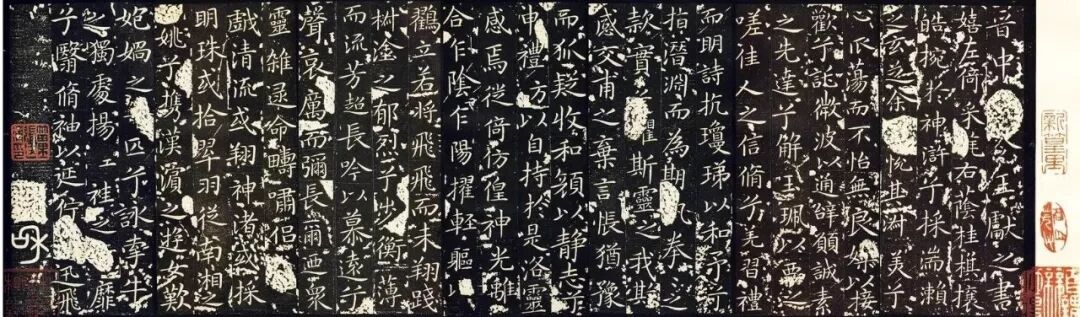 晉中書令王獻之書
嬉左倚采旄右蔭桂旗攘
皓捥於神滸兮採湍瀨
之玄芝余悅其淑美兮
心振蕩而不怡無良媒以接
歡兮託微波以通辭願誠素
之先達兮解玉珮以要之
嗟佳人之信脩兮羌習禮
而明詩抗瓊珶以和予兮
指潛淵而為期執拳之
款實懼斯靈之我欺
感交甫之棄言悵猶豫
而狐疑收和顏以靜志兮
申禮防以自持於是洛靈
感焉徙倚彷徨神光離
合乍陰乍陽擢輕軀以
鸖立若將飛飛而未翔踐
椒塗之郁烈兮步衡薄
而流芳超長吟以慕遠兮
聲哀厲而彌長爾迺衆
靈雜遝命疇嘯侶
戲清流或翔神渚或採
明珠或拾翠羽從南湘之
姚兮攜漢濱之遊女歎
媧之匹兮詠牽牛
之獨處揚袿之靡
兮翳脩袖以延佇迅飛